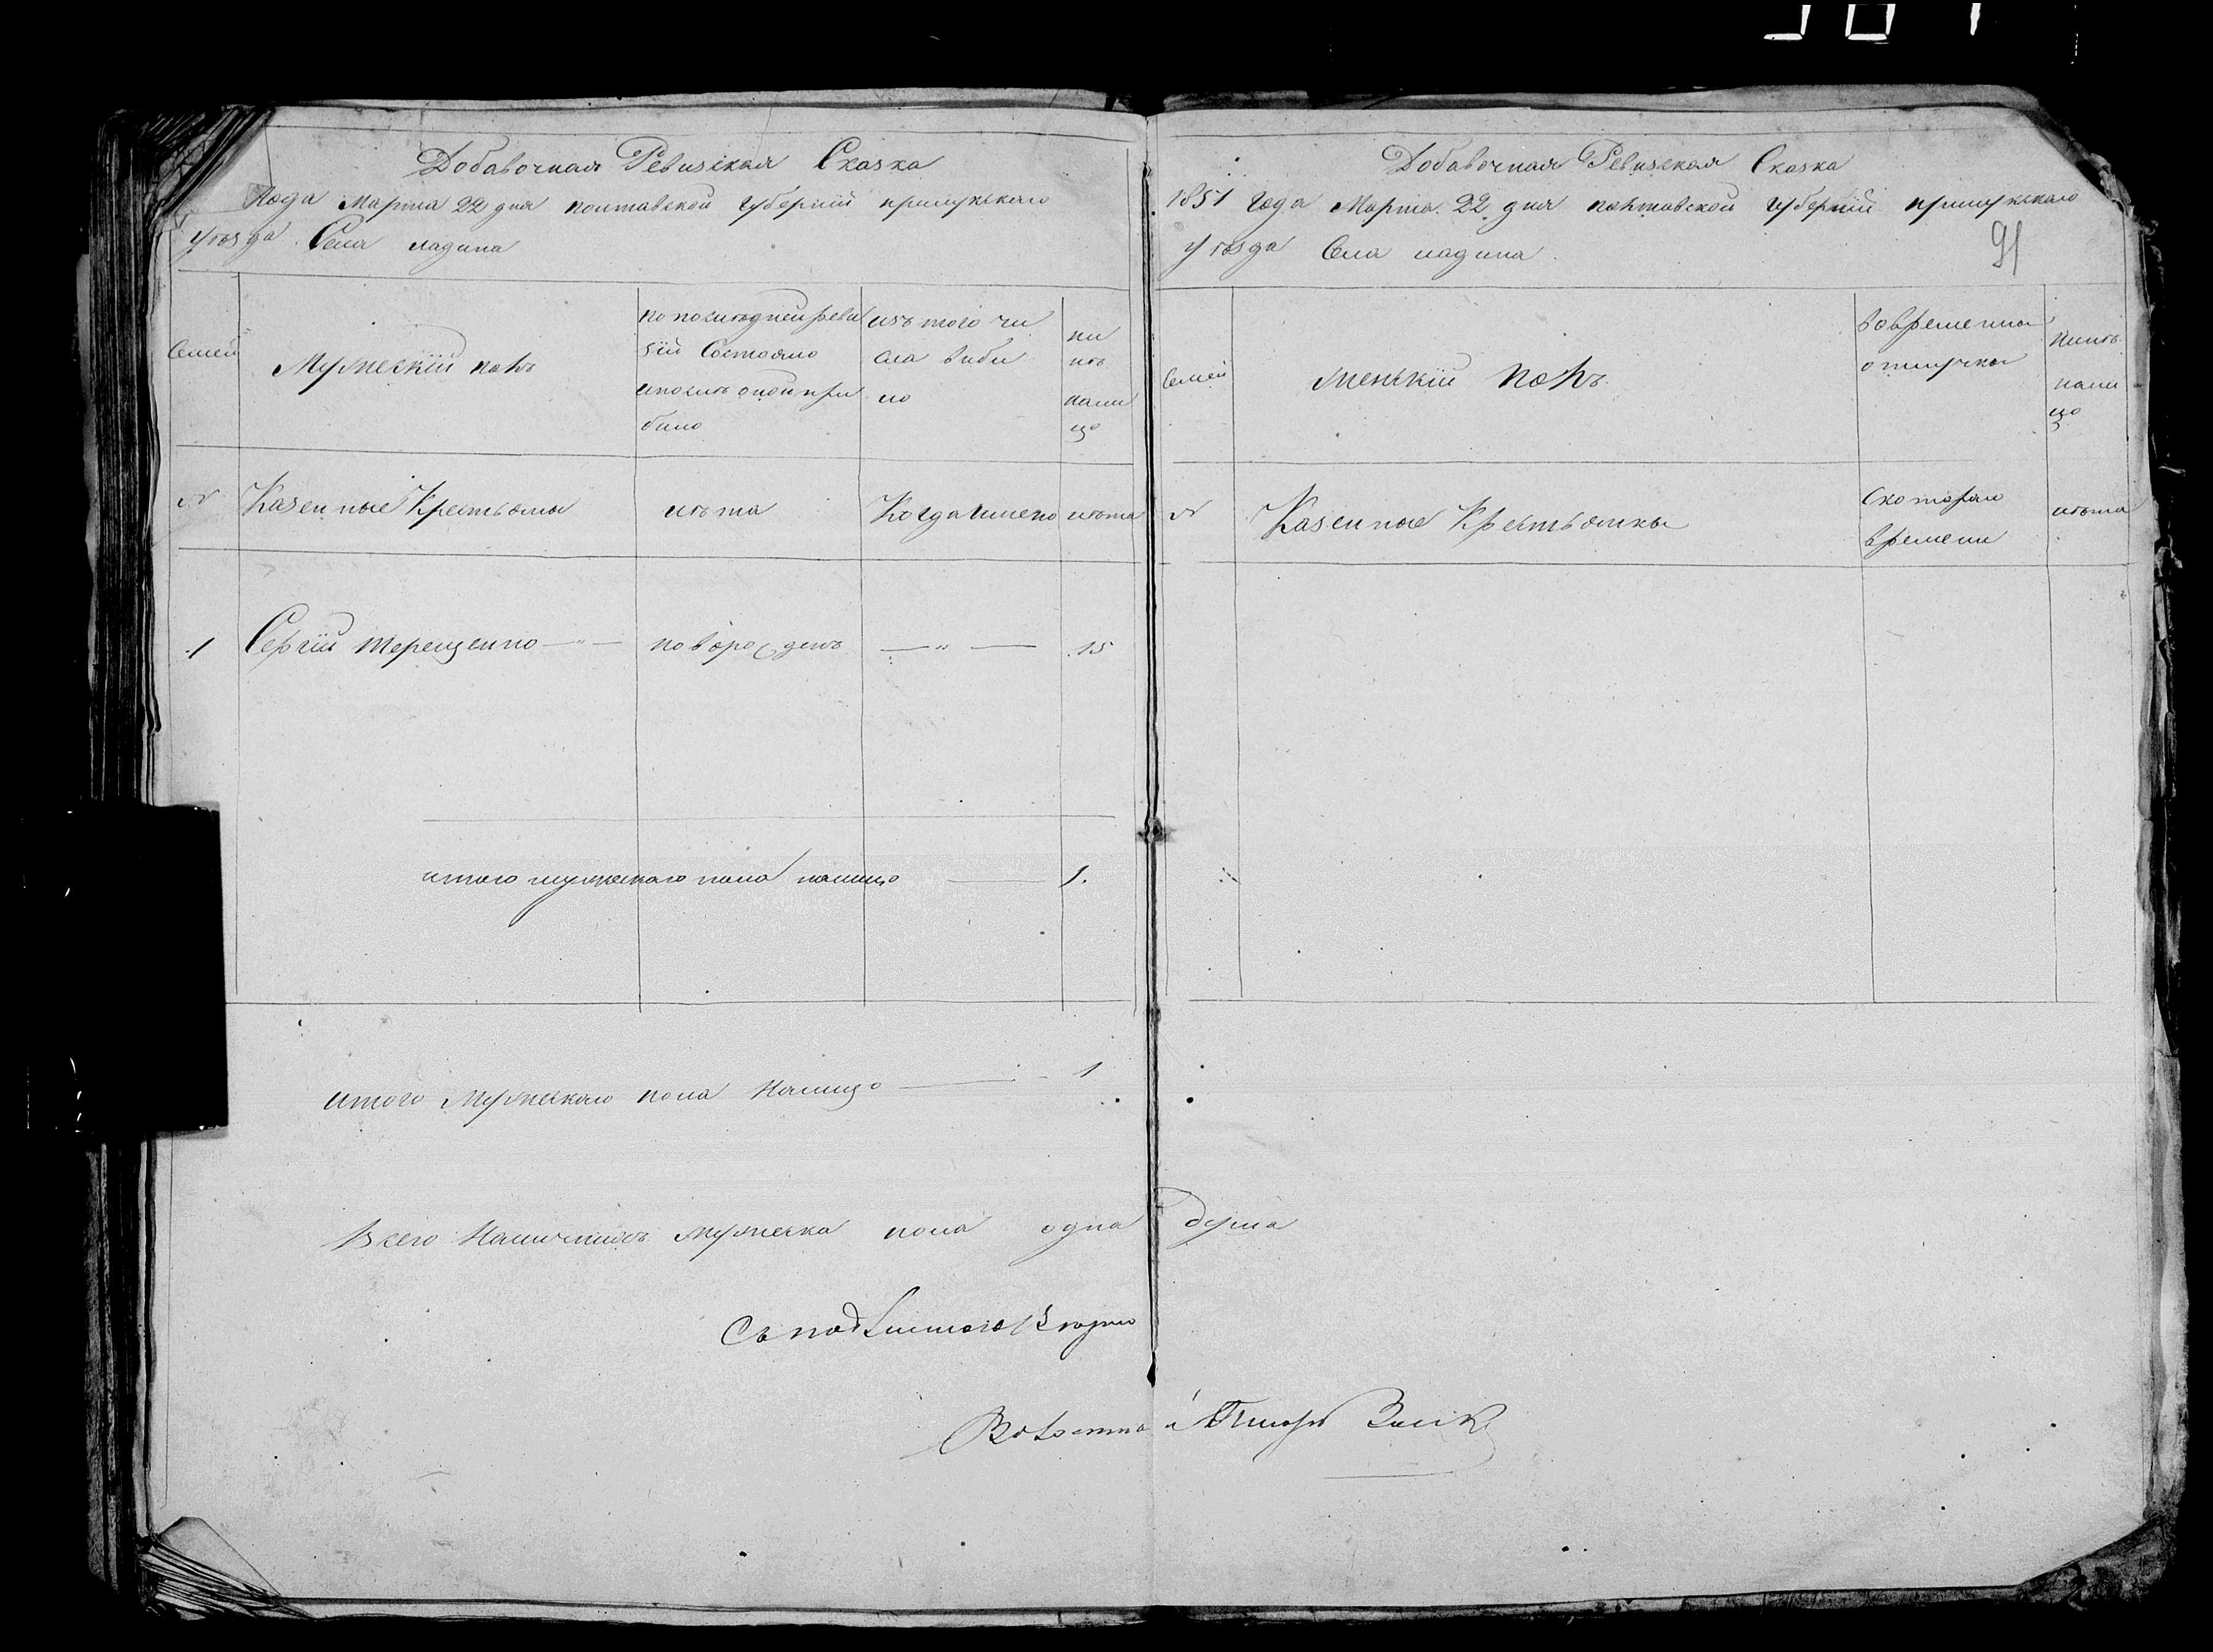 Добавочная Ревизская Сказка
года Марта 22 дня полтавской губерніи прилукскаго
уѣзда Села ладина
Семей
Мужескій полъ
по последней реви
зіи Состояло
и после оной при
было
изъ того чи
сла выбы
ло
ны
нѣ
нали
цо
№
Казенные Крестьяны
лѣта
Когда имено
лѣта
1
Сергій терещенко — " —
новорожденъ
— " —
15
итого мужескаго пола налицо — 1.
итого Мужескаго пола Налицо — 1
Всего Наличныхъ Мужеска пола одна душа
Съ подлиннымъ Верно
Добавочная Ревизская Сказка
1851 года Марта 22 дня полтавской губерніи прилукскаго
уѣзда Села ладина
91
Семей
женскій полъ
во временны
отлучкы
Нынѣ
нали
цо
№
Казенные Крестьянкы
Скоторои
времени
лѣта